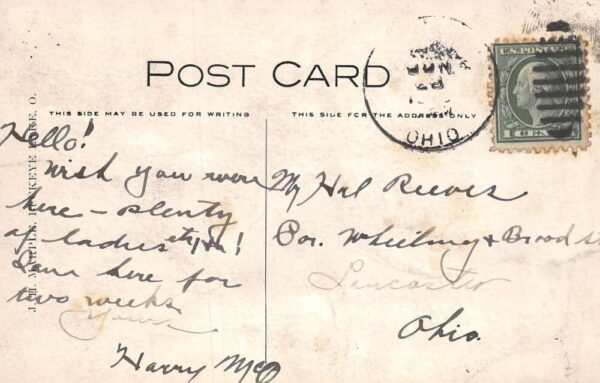 POST CARD
THIS SIDE MAY BE USED FOR WRITING
THIS SIDE FOR THE ADDRESS ONLY
U.S. POSTAGE
OHIO
Hello!
Wish you were
here - plenty
of ladies etc, Ha!
Am here for
two weeks
Yours
Harry McO
Mr Hal Reeves
Cor. Wheeling & Broad st
Lancaster
Ohio.
J. H. MARPLE, BUCKEYE LAKE, O.